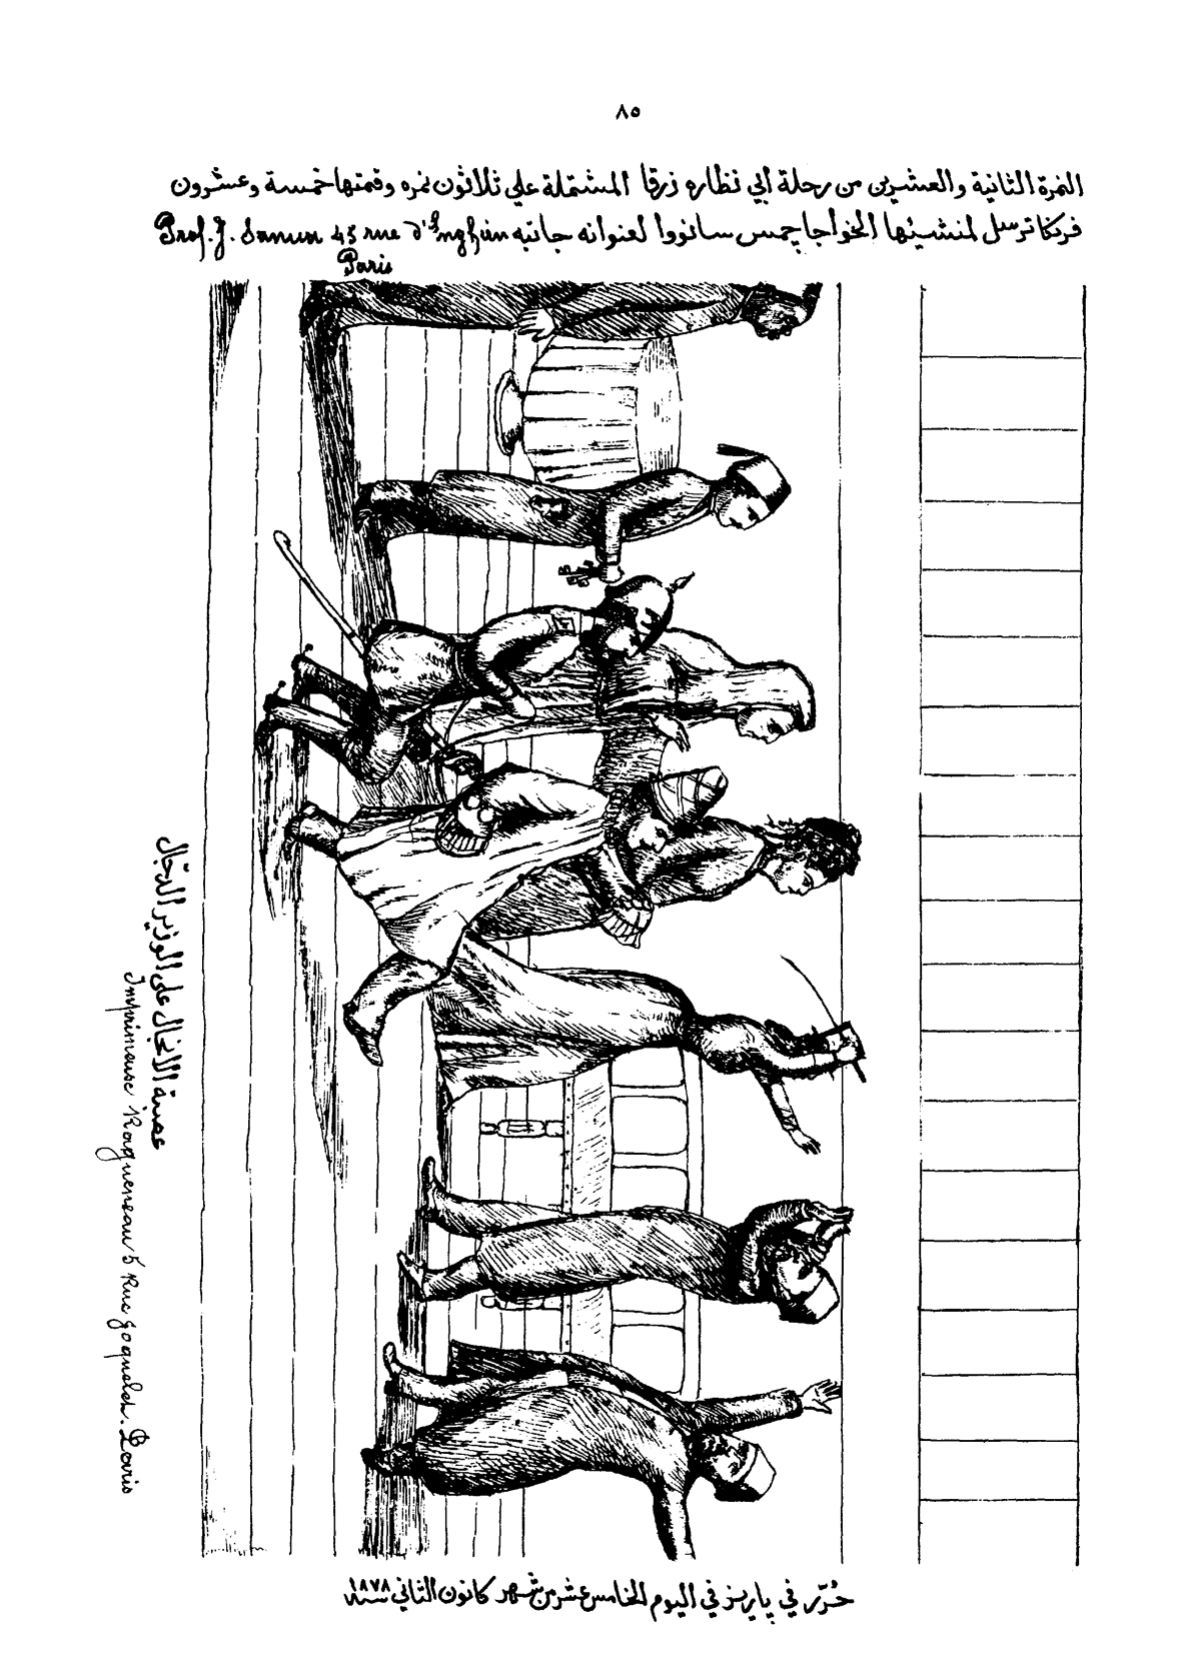 ٨٥
النمرة الثانية والعشرين من رحلة أبي نظاره زرقا المشتملة علي ثلاثون نمره وقمتها خمسة وعشرون
فرنكا ترسل لمنشيئها الخواجا جمس سانووا لعنوانه جانبه Prof. J. Sanua 43 rue d'Enghien
Paris
عصبة الانجال على الوزير الدجّال
Imprimeuse Ragueneau 5 Rue Joquelet. Paris
حُرّر في پاريز في اليوم الخامس عشر من شهر كانون الثاني سنة ١٨٧٨